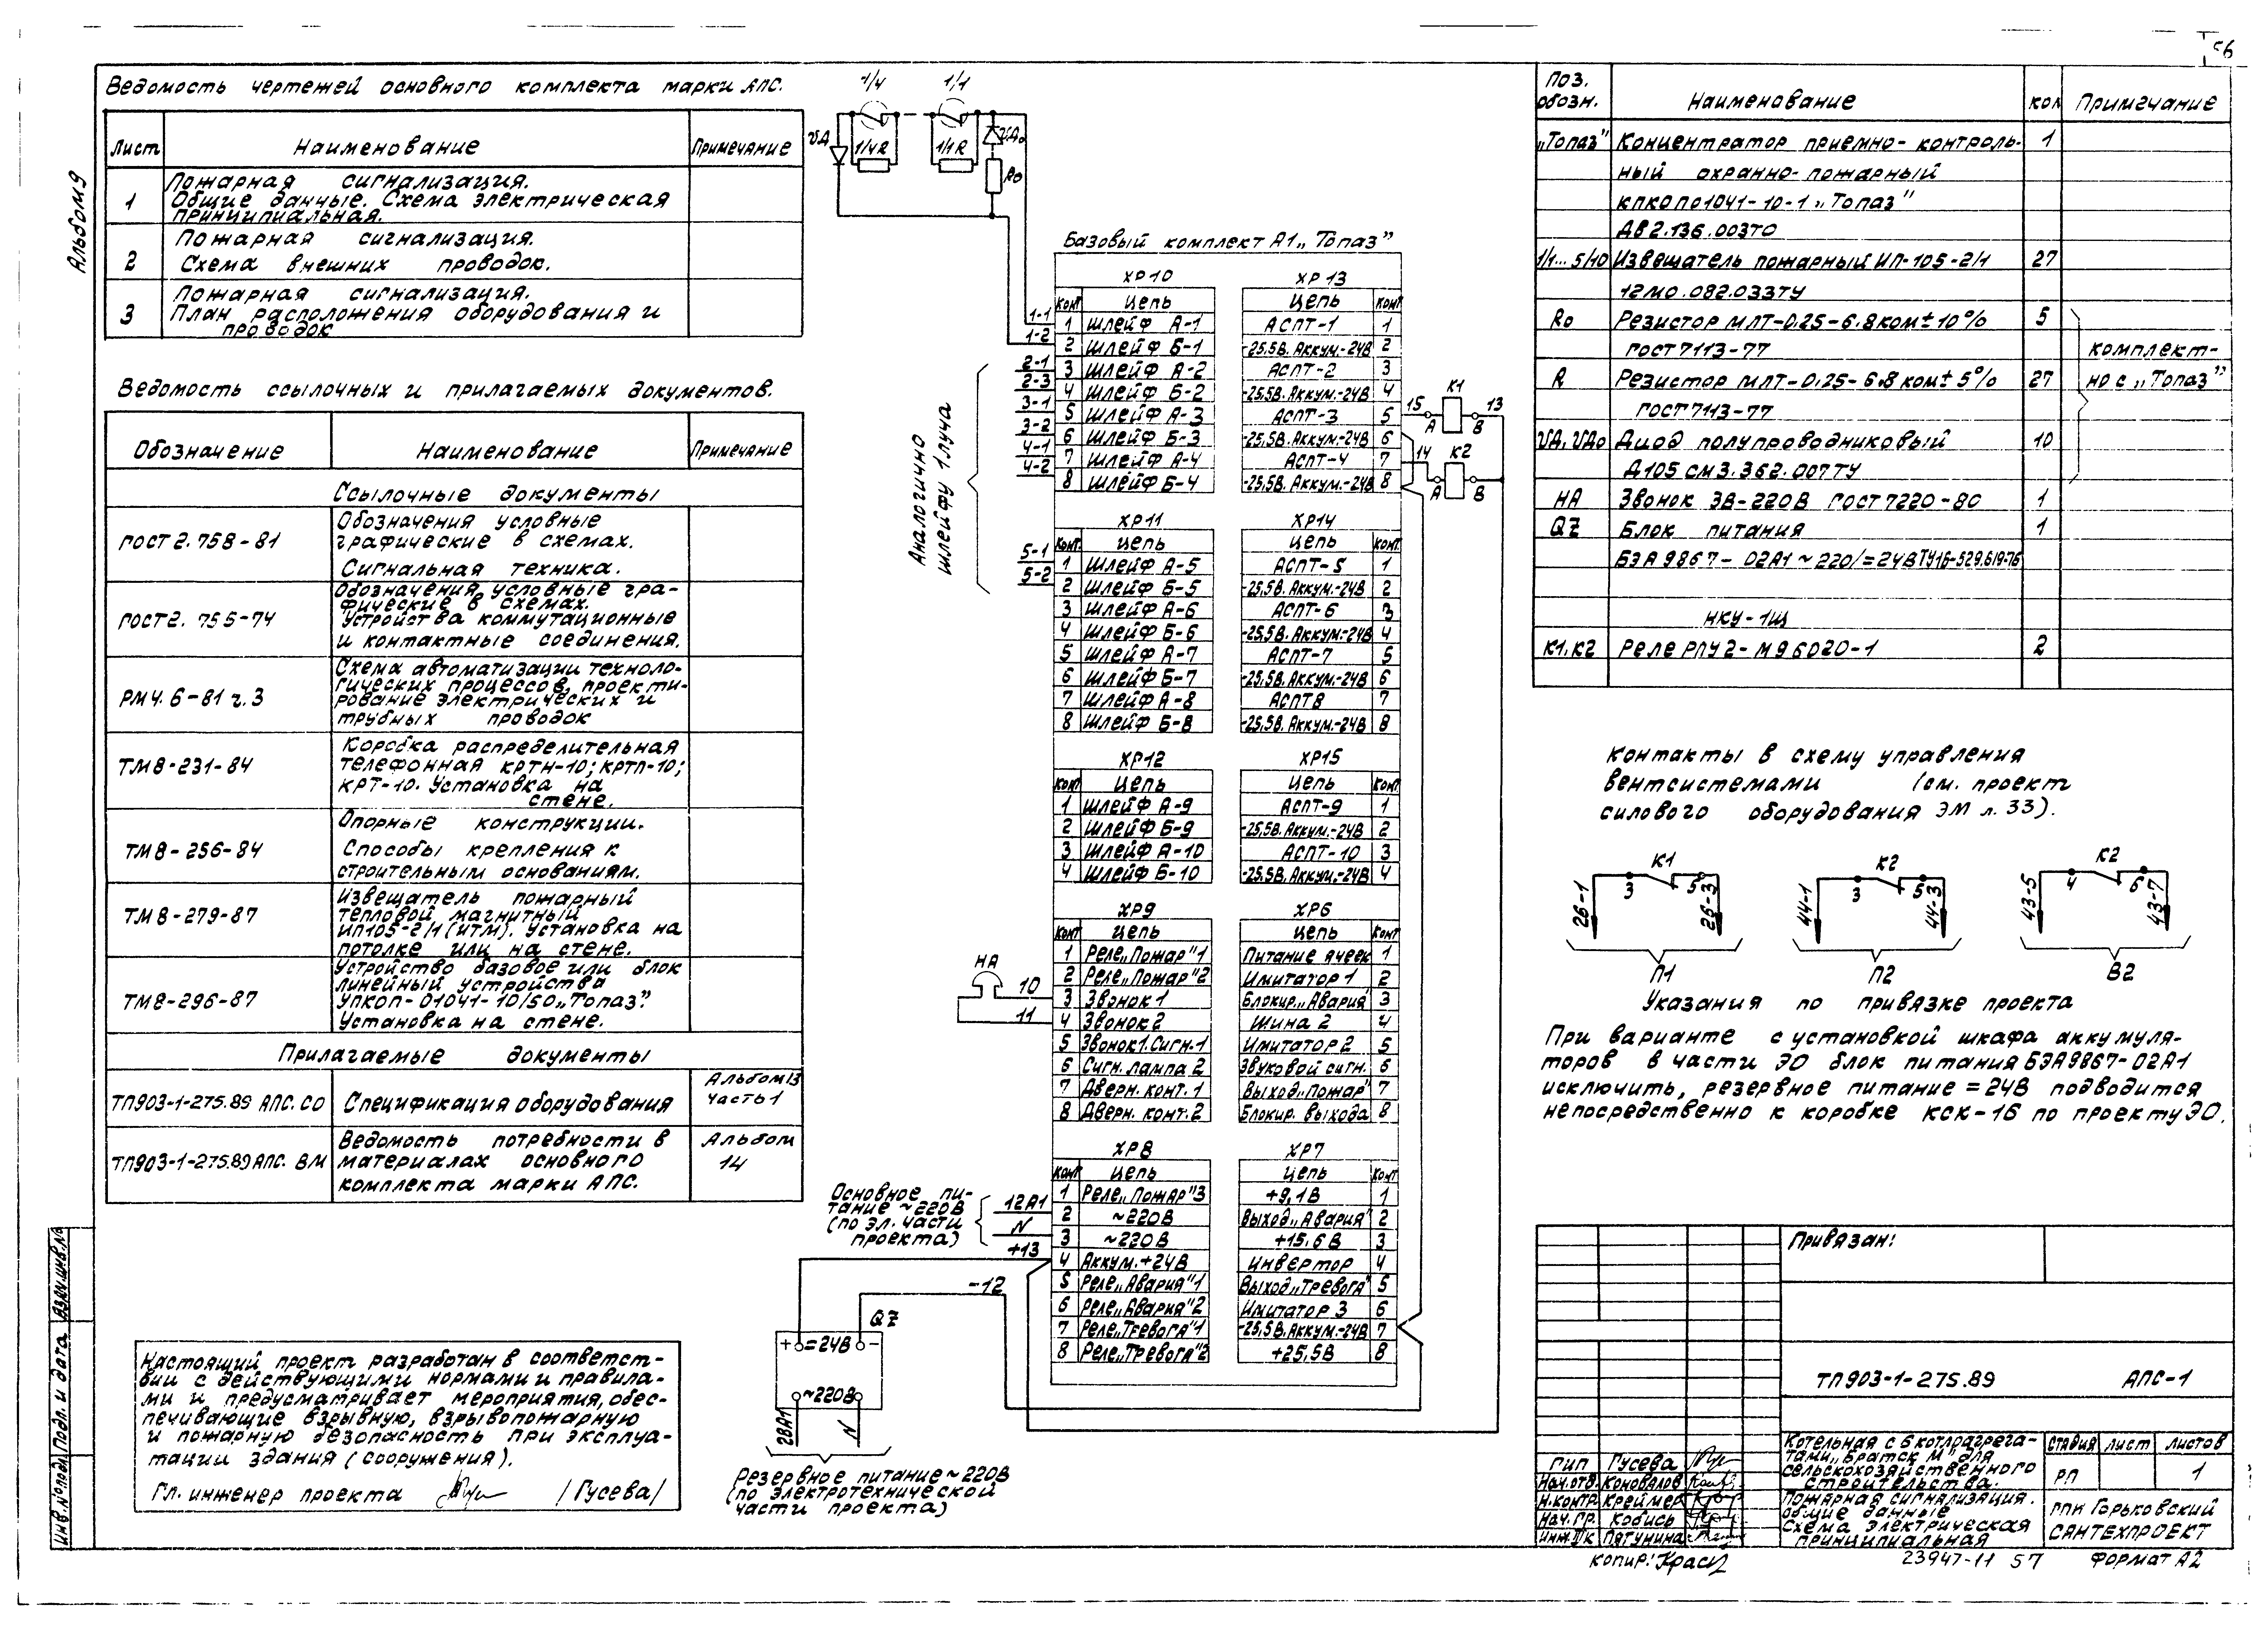 56
Альбом 9
Ведомость чертежей основного комплекта марки АПС.
Лист Наименование Примечание
1 Пожарная сигнализация.
Общие данные. Схема электрическая
принципиальная.
2 Пожарная сигнализация.
Схема внешних проводок.
3 Пожарная сигнализация.
План расположения оборудования и
проводок
Ведомость ссылочных и прилагаемых документов.
Обозначение Наименование Примечание
Ссылочные документы
ГОСТ 2.758-81 Обозначения условные
графические в схемах.
Сигнальная техника.
ГОСТ 2.755-74 Обозначения условные гра-
фические в схемах.
Устройства коммутационные
и контактные соединения.
РМ4.6-81 ч.3 Схема автоматизации техноло-
гических процессов, проекти-
рование электрических и
трубных проводок
ТМ8-231-84 Коробка распределительная
телефонная КРТН-10; КРТП-10;
КРТ-10. Установка на
стене.
ТМ8-256-84 Опорные конструкции.
Способы крепления к
строительным основаниям.
ТМ8-279-87 Извещатель пожарный
тепловой, магнитный
ИП105-2/1 (ИТМ). Установка на
потолке или на стене.
ТМ8-296-87 Устройство базовое или блок
линейный устройства
УПКОП-01041-10/50 „Топаз".
Установка на стене.
Прилагаемые документы
ТП903-1-275.89 АПС.СО Спецификация оборудования Альбом 13
часть 1
ТП903-1-275.89 АПС. ВМ Ведомость потребности в
материалах основного
комплекта марки АПС. Альбом
14
Настоящий проект разработан в соответст-
вии с действующими нормами и правила-
ми и предусматривает мероприятия, обес-
печивающие взрывную, взрывопожарную
и пожарную безопасность при эксплуа-
тации здания (сооружения).
Гл. инженер проекта /Гусева/
Инв.№ подл. Подп. и дата Взам.инв.№
1/4 1/1
VД 1/4R 1/1R VДо
Rо
Базовый комплект А1 „Топаз"
1-1
1-2
2-1
2-3
3-1
3-2
4-1
4-2
5-1
5-2
Аналогично
шлейфу 1 луча
ХР10 ХР13
Конт Цепь Цепь Конт
1 Шлейф А-1 АСПТ-1 1
2 Шлейф Б-1 -25,5В. Аккум.-24В 2
3 Шлейф А-2 АСПТ-2 3
4 Шлейф Б-2 -25,5В. Аккум.-24В 4
5 Шлейф А-3 АСПТ-3 5
6 Шлейф Б-3 -25,5В. Аккум.-24В 6
7 Шлейф А-4 АСПТ-4 7
8 Шлейф Б-4 -25,5В. Аккум.-24В 8
15 К1 13
А В
14 К2
А В
ХР11 ХР14
Конт. Цепь Цепь Конт.
1 Шлейф А-5 АСПТ-5 1
2 Шлейф Б-5 -25,5В. Аккум.-24В 2
3 Шлейф А-6 АСПТ-6 3
4 Шлейф Б-6 -25,5В. Аккум.-24В 4
5 Шлейф А-7 АСПТ-7 5
6 Шлейф Б-7 -25,5В. Аккум.-24В 6
7 Шлейф А-8 АСПТ8 7
8 Шлейф Б-8 -25,5В. Аккум.-24В 8
ХР12 ХР15
Конт Цепь Цепь Конт
1 Шлейф А-9 АСПТ-9 1
2 Шлейф Б-9 -25,5В. Аккум.-24В 2
3 Шлейф А-10 АСПТ-10 3
4 Шлейф Б-10 -25,5В. Аккум.-24В 4
ХР9 ХР6
Конт Цепь Цепь Конт
1 Реле „Пожар"1 Питание ячеек 1
2 Реле „Пожар"2 Имитатор 1 2
3 Звонок 1 Блокир. „Авария" 3
4 Звонок 2 Шина 2 4
5 Звонок1. Сигн.1 Имитатор 2 5
6 Сигн. лампа 2 Звуковой сигн. 6
7 Дверн. конт. 1 Выход „Пожар" 7
8 Дверн. конт. 2 Блокир. выхода 8
НА
10
11
ХР8 ХР7
Конт Цепь Цепь Конт
1 Реле „Пожар"3 +9,1В 1
2 ~220В Выход „Авария" 2
3 ~220В +15,6В 3
4 Аккум.+24В Инвертор 4
5 Реле „Авария"1 Выход „Тревога" 5
6 Реле „Авария"2 Имитатор 3 6
7 Реле „Тревога"1 -25,5В. Аккум.-24В 7
8 Реле „Тревога"2 +25,5В 8
Основное пи-
тание ~220В
(по эл. части
проекта)
12А1
N
+13
-12
QZ
+ =24В -
~220В
28А1 N
Резервное питание ~220В
(по электротехнической
части проекта)
Поз.
обозн. Наименование кол Примечание
„Топаз" Концентратор приемно-контроль- 1
ный охранно-пожарный
КПКОП01041-10-1 „Топаз"
ДВ2.136.003ТО
1/1...5/10 Извещатель пожарный ИП-105-2/1 27
12МО.082.033ТУ
Rо Резистор МЛТ-0,25-6.8 ком±10% 5
ГОСТ 7113-77 комплект-
R Резистор МЛТ-0,25-6.8 ком±5% 27 но с „Топаз"
ГОСТ 7113-77
VД, VДо Диод полупроводниковый 10
Д105 СМ3.362.007ТУ
НА Звонок ЗВ-220В ГОСТ 7220-80 1
QZ Блок питания 1
БЭА9867-02А1 ~220/=24В ТУ16-529.619-76
НКУ-1Щ
К1.К2 Реле РПУ2-М96020-1 2
Контакты в схему управления
вентсистемами (см. проект
силового оборудования ЭМ л. 33).
К1 К2 К2
26-1 3 5 26-3 44-1 3 5 44-3 43-5 4 6 43-7
П1 П2 В2
Указания по привязке проекта
При варианте с установкой шкафа аккумуля-
торов в части ЭО блок питания БЭА9867-02А1
исключить, резервное питание =24В подводится
непосредственно к коробке КСК-16 по проекту ЭО.
Привязан:
ТП903-1-275.89 АПС-1
ГИП Гусева
Нач.отд. Коновалов
Н.контр. Креймер
Нач.гр. Кобись
Инж.IIк Пятунина
Котельная с 6 котлоагрега-
тами „Братск М" для
сельскохозяйственного
строительства.
Стадия Лист Листов
РП 1
Пожарная сигнализация.
Общие данные
Схема электрическая
принципиальная
ГПИ Горьковский
САНТЕХПРОЕКТ
Копир:
23947-11 57 Формат А2